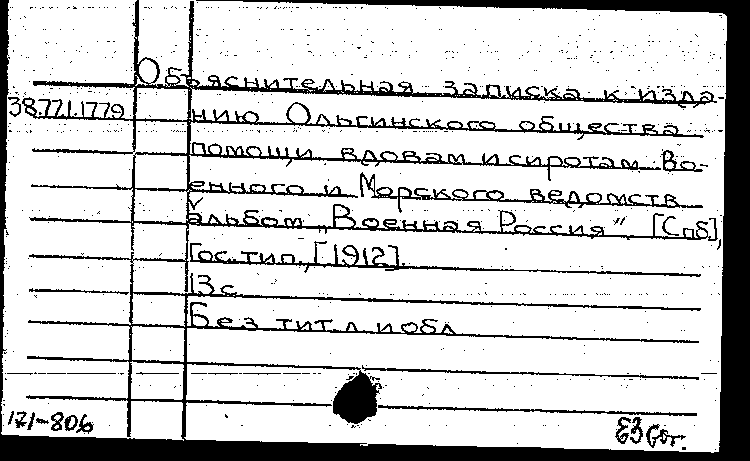 Объяснительная записка к изда-
38.77.1.1779 нию Ольгинского общества
помощи вдовам и сиротам Во-
енного и Морского ведомств
альбом „Военная Россия“. [Спб],
Гос. тип., [1912].
13 с.
Без тит. л. и обл.
171-806